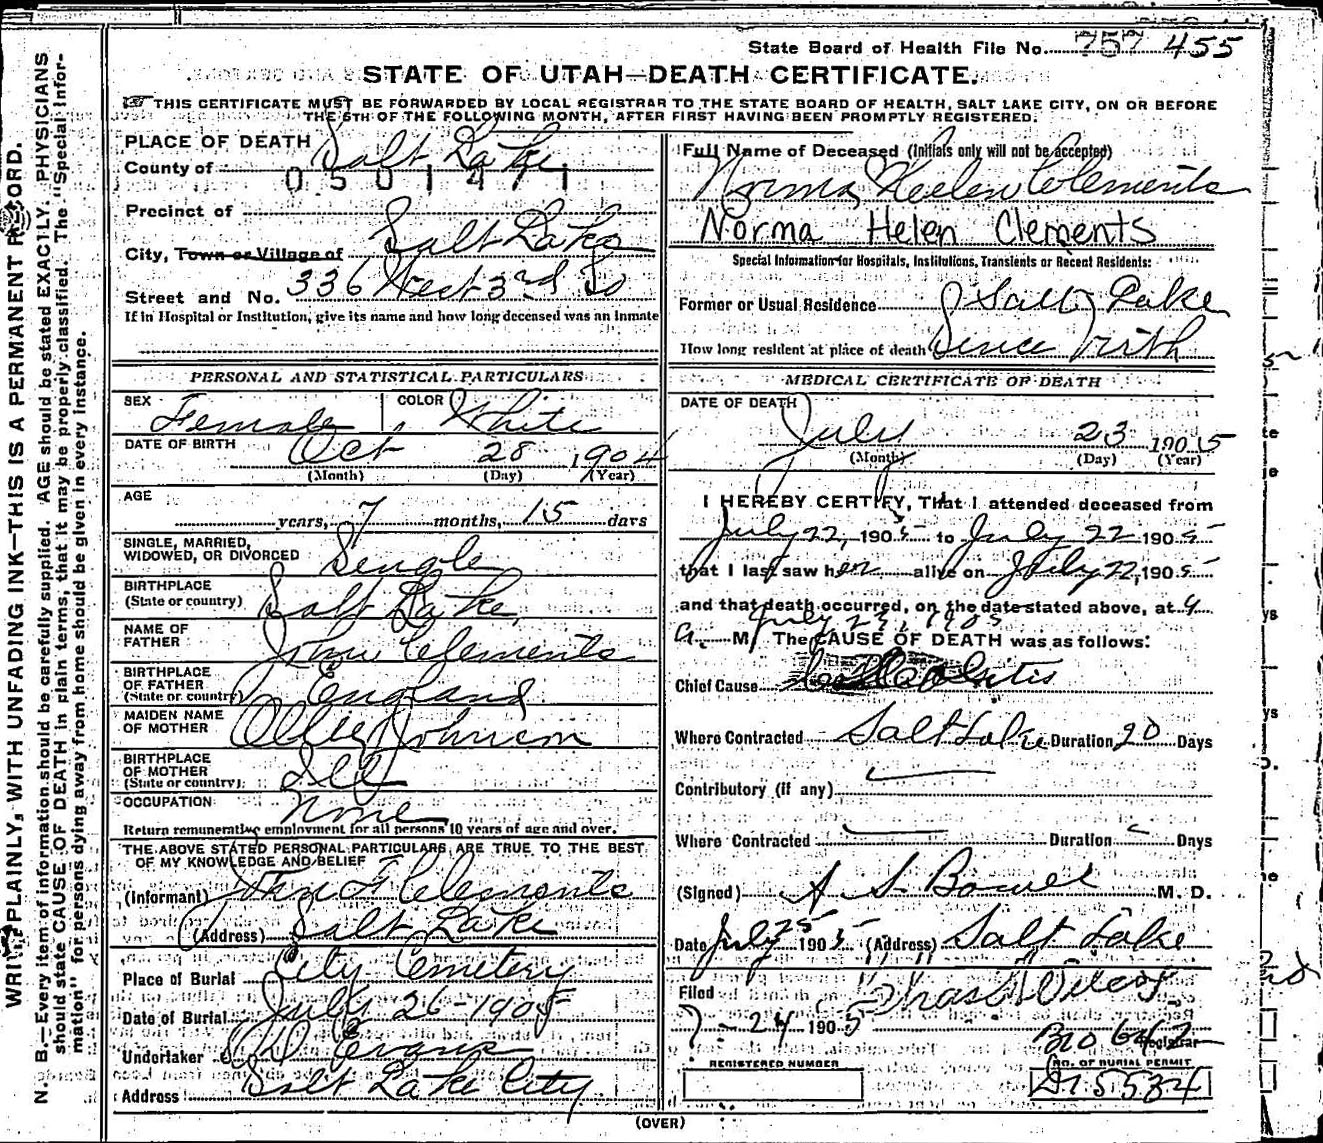 State Board of Health File No. 757 455
STATE OF UTAH—DEATH CERTIFICATE.
THIS CERTIFICATE MUST BE FORWARDED BY LOCAL REGISTRAR TO THE STATE BOARD OF HEALTH, SALT LAKE CITY, ON OR BEFORE
THE 5TH OF THE FOLLOWING MONTH, AFTER FIRST HAVING BEEN PROMPTLY REGISTERED.
PLACE OF DEATH
County of Salt Lake
0501471
Precinct of
City, Town or Village of Salt Lake
Street and No. 336 West 3rd So
If in Hospital or Institution, give its name and how long deceased was an inmate
PERSONAL AND STATISTICAL PARTICULARS
SEX Female COLOR White
DATE OF BIRTH Oct 28 1904
(Month) (Day) (Year)
AGE
years, 7 months, 15 days
SINGLE, MARRIED,
WIDOWED, OR DIVORCED Single
BIRTHPLACE
(State or country) Salt Lake,
NAME OF
FATHER John Clements
BIRTHPLACE
OF FATHER
(State or country) England
MAIDEN NAME
OF MOTHER Ollie Johnson
BIRTHPLACE
OF MOTHER
(State or country) Ill
OCCUPATION None
Return remunerative employment for all persons 10 years of age and over.
THE ABOVE STATED PERSONAL PARTICULARS ARE TRUE TO THE BEST
OF MY KNOWLEDGE AND BELIEF
(Informant) John F Clements
(Address) Salt Lake
Place of Burial City Cemetery
Date of Burial July 26-1905
Undertaker Evans
Address Salt Lake City
Full Name of Deceased (Initials only will not be accepted)
Norma Heelen Clements
Norma Helen Clements
Special Information for Hospitals, Institutions, Transients or Recent Residents:
Former or Usual Residence Salt Lake
How long resident at place of death Since Birth
MEDICAL CERTIFICATE OF DEATH
DATE OF DEATH
July 23 1905
(Month) (Day) (Year)
I HEREBY CERTIFY, That I attended deceased from
July 22, 1905 to July 22 1905
that I last saw her alive on July 22, 1905
and that death occurred, on the date stated above, at 4
July 23, 1905
a. M. The CAUSE OF DEATH was as follows:
Chief Cause
Where Contracted Salt Lake Duration 20 Days
Contributory (if any)
Where Contracted Duration Days
(Signed) A S Bower M. D.
Date July 25 1905 (Address) Salt Lake
Filed
7-24 1905
Registrar
REGISTERED NUMBER
NO. OF BURIAL PERMIT
(OVER)
WRITE PLAINLY, WITH UNFADING INK—THIS IS A PERMANENT RECORD.
N. B.—Every item of information should be carefully supplied. AGE should be stated EXACTLY. PHYSICIANS
should state CAUSE OF DEATH in plain terms, that it may be properly classified. The "Special Infor-
mation" for persons dying away from home should be given in every instance.